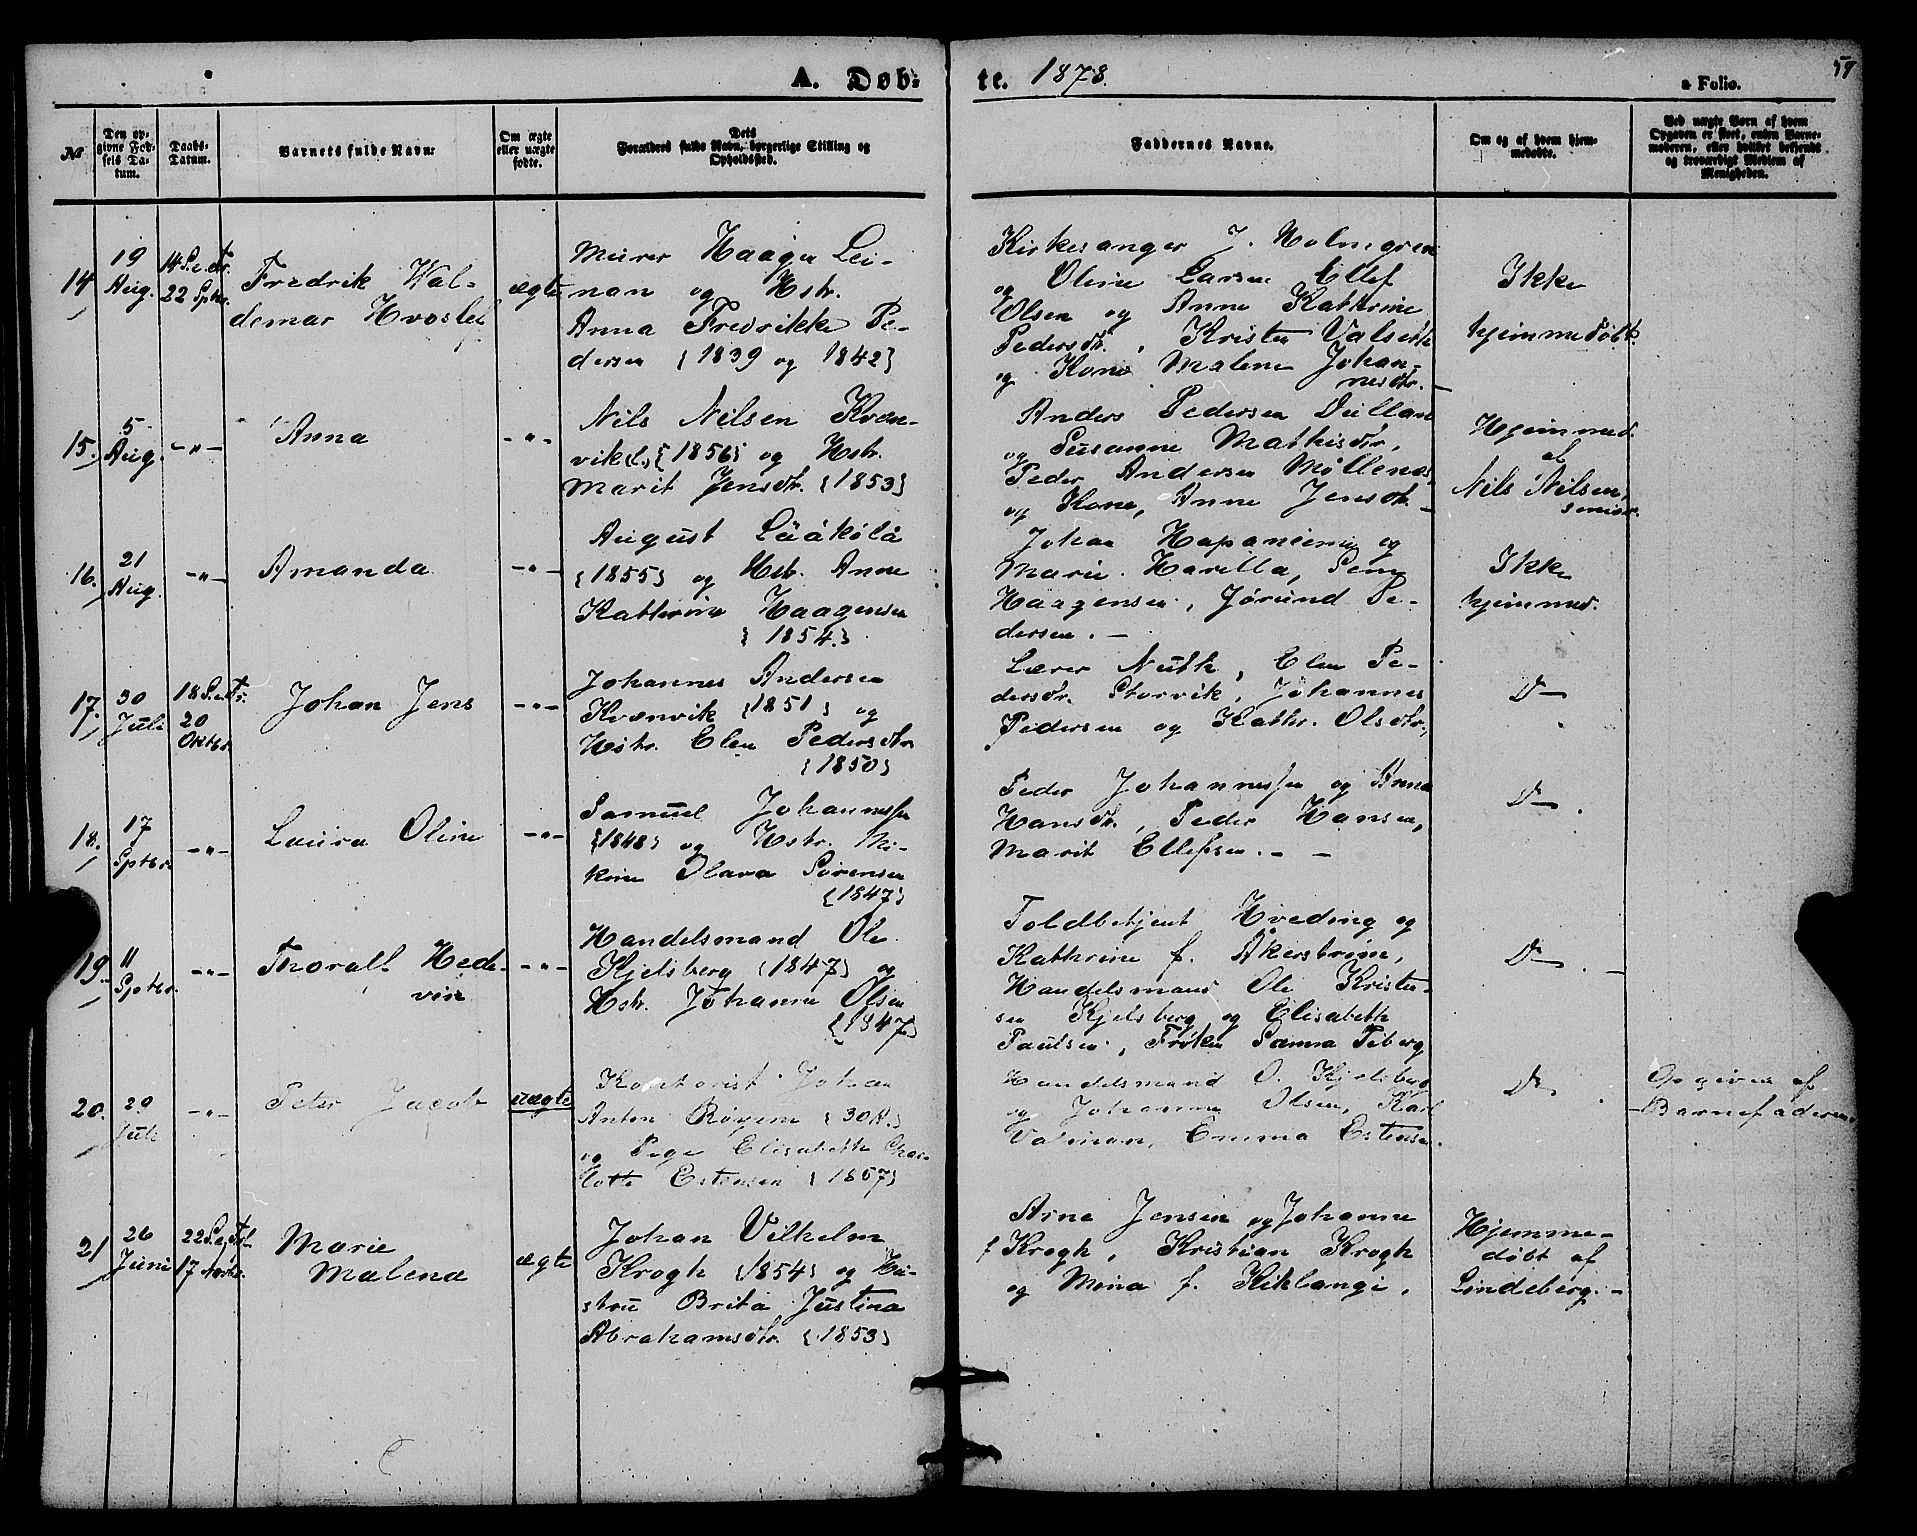 A. Døb-
te. 1878.
a Folio.
59
No
Den op-
givne Fød-
sels Da-
tum.
Daabs-
Datum.
Barnets fulde Navn:
Om ægte
eller uægte
fødte.
Dets
Forældres fulde Navn, borgerlige Stilling og
Opholdssted.
Faddernes Navne.
Om og af hvem hjem-
medøbte.
Ved uægte Børn af hvem
Opgaven er skeet, enten Barne-
moderen, eller hvilket bekjendt
og troværdigt Medlem af
Menigheden.
14
19
Aug.
14 S. e. Tr.
22 Sptbr.
Fredrik Val-
demar Hvoslef
ægte
Murer Haagen Lei-
nan og Hstr.
Anna Fredrikke Pe-
dersen {1839 og 1842}
Kirkesanger J. Holmgren
og Oline Larsen Ellef
Olsen og Anne Kathrine
Pedersdtr., Kristen Valseth
og Kone Malene Johan-
nesdtr. -
Ikke
hjemmedøbt.
15.
5
Aug.
-"-
Anna
-"-
Nils Nilsen Kvæn-
vik {1856} og Hstr.
Marit Jensdtr. {1853}
Anders Pedersen
og Susanne Mathisdtr,
Peder Andersen Møllenes,
og Kone, Anne Jensdtr. -
Hjemmed.
af
Nils Nilsen,
senior.
16.
21
Aug.
-"-
Amanda
-"-
August Lääkölä
{1855} og Hstr. Anne
Kathrine Haagensen
{1854.}
Johan Hapaniemi og
Marie Harilla,
Haagensen, Jørund Pe-
dersen. -
Ikke
hjemmed.
17.
30
Juli
18 S. e. Tr.
20
Oktbr.
Johan Jens
-"-
Johannes Andersen
Kvænvik {1851} og
Hstr. Elen Pedersdtr
{1850}
Lærer Nuth, Elen Pe-
dersdtr. Storvik, Johannes
Pedersen og Kathr. Olsdtr,
Do
18.
17
Sptbr.
-"-
Laura Oline
-"-
Samuel Johannessen
{1848} og Hstr. Mi-
kine Olava Sørensen
{1847}
Peder Johannessen og Anna
Hansdtr, Peder Hansen,
Marit Ellefsen. - -
Do.
19.
11
Sptbr.
-"-
Thoralf Hede-
vin
-"-
Handelsmand Ole
Kjelsberg {1847} og
Hstr. Johanne Olsen
{1847}
Toldbetjent Hveding og
Kathrine f. Akerstrøm,
Handelsmand Ole Kristen-
sen Kjelsberg og Elisabeth
Paulsen, Frøken Sanna Feberg
Do. -
20.
29
Juli
-"-
Peter Jacob
uægte
Kontorist Johan
Anton Røyem {30 A.}
og Pige Elisabeth Char-
lotte Estensen {1857}
Handelsmand O. Kjelsberg
og Johanne Olsen, Karl
Valmian, Emma Estensen.
Do.
Opgiven af
Barnefaderen
21
26
Juni
22 S. e. Tr.
17 Novbr.
Marie
Malena
ægte
Johan Vilhelm
Krogh {1854} og Hu-
stru Brita Justina
Abrahamsdtr. {1853}
Arne Jensen og Johanne
f Krogh, Kristian Krogh
og Mina f. Kiklangi,
Hjemme-
døbt af
Lindeberg. -